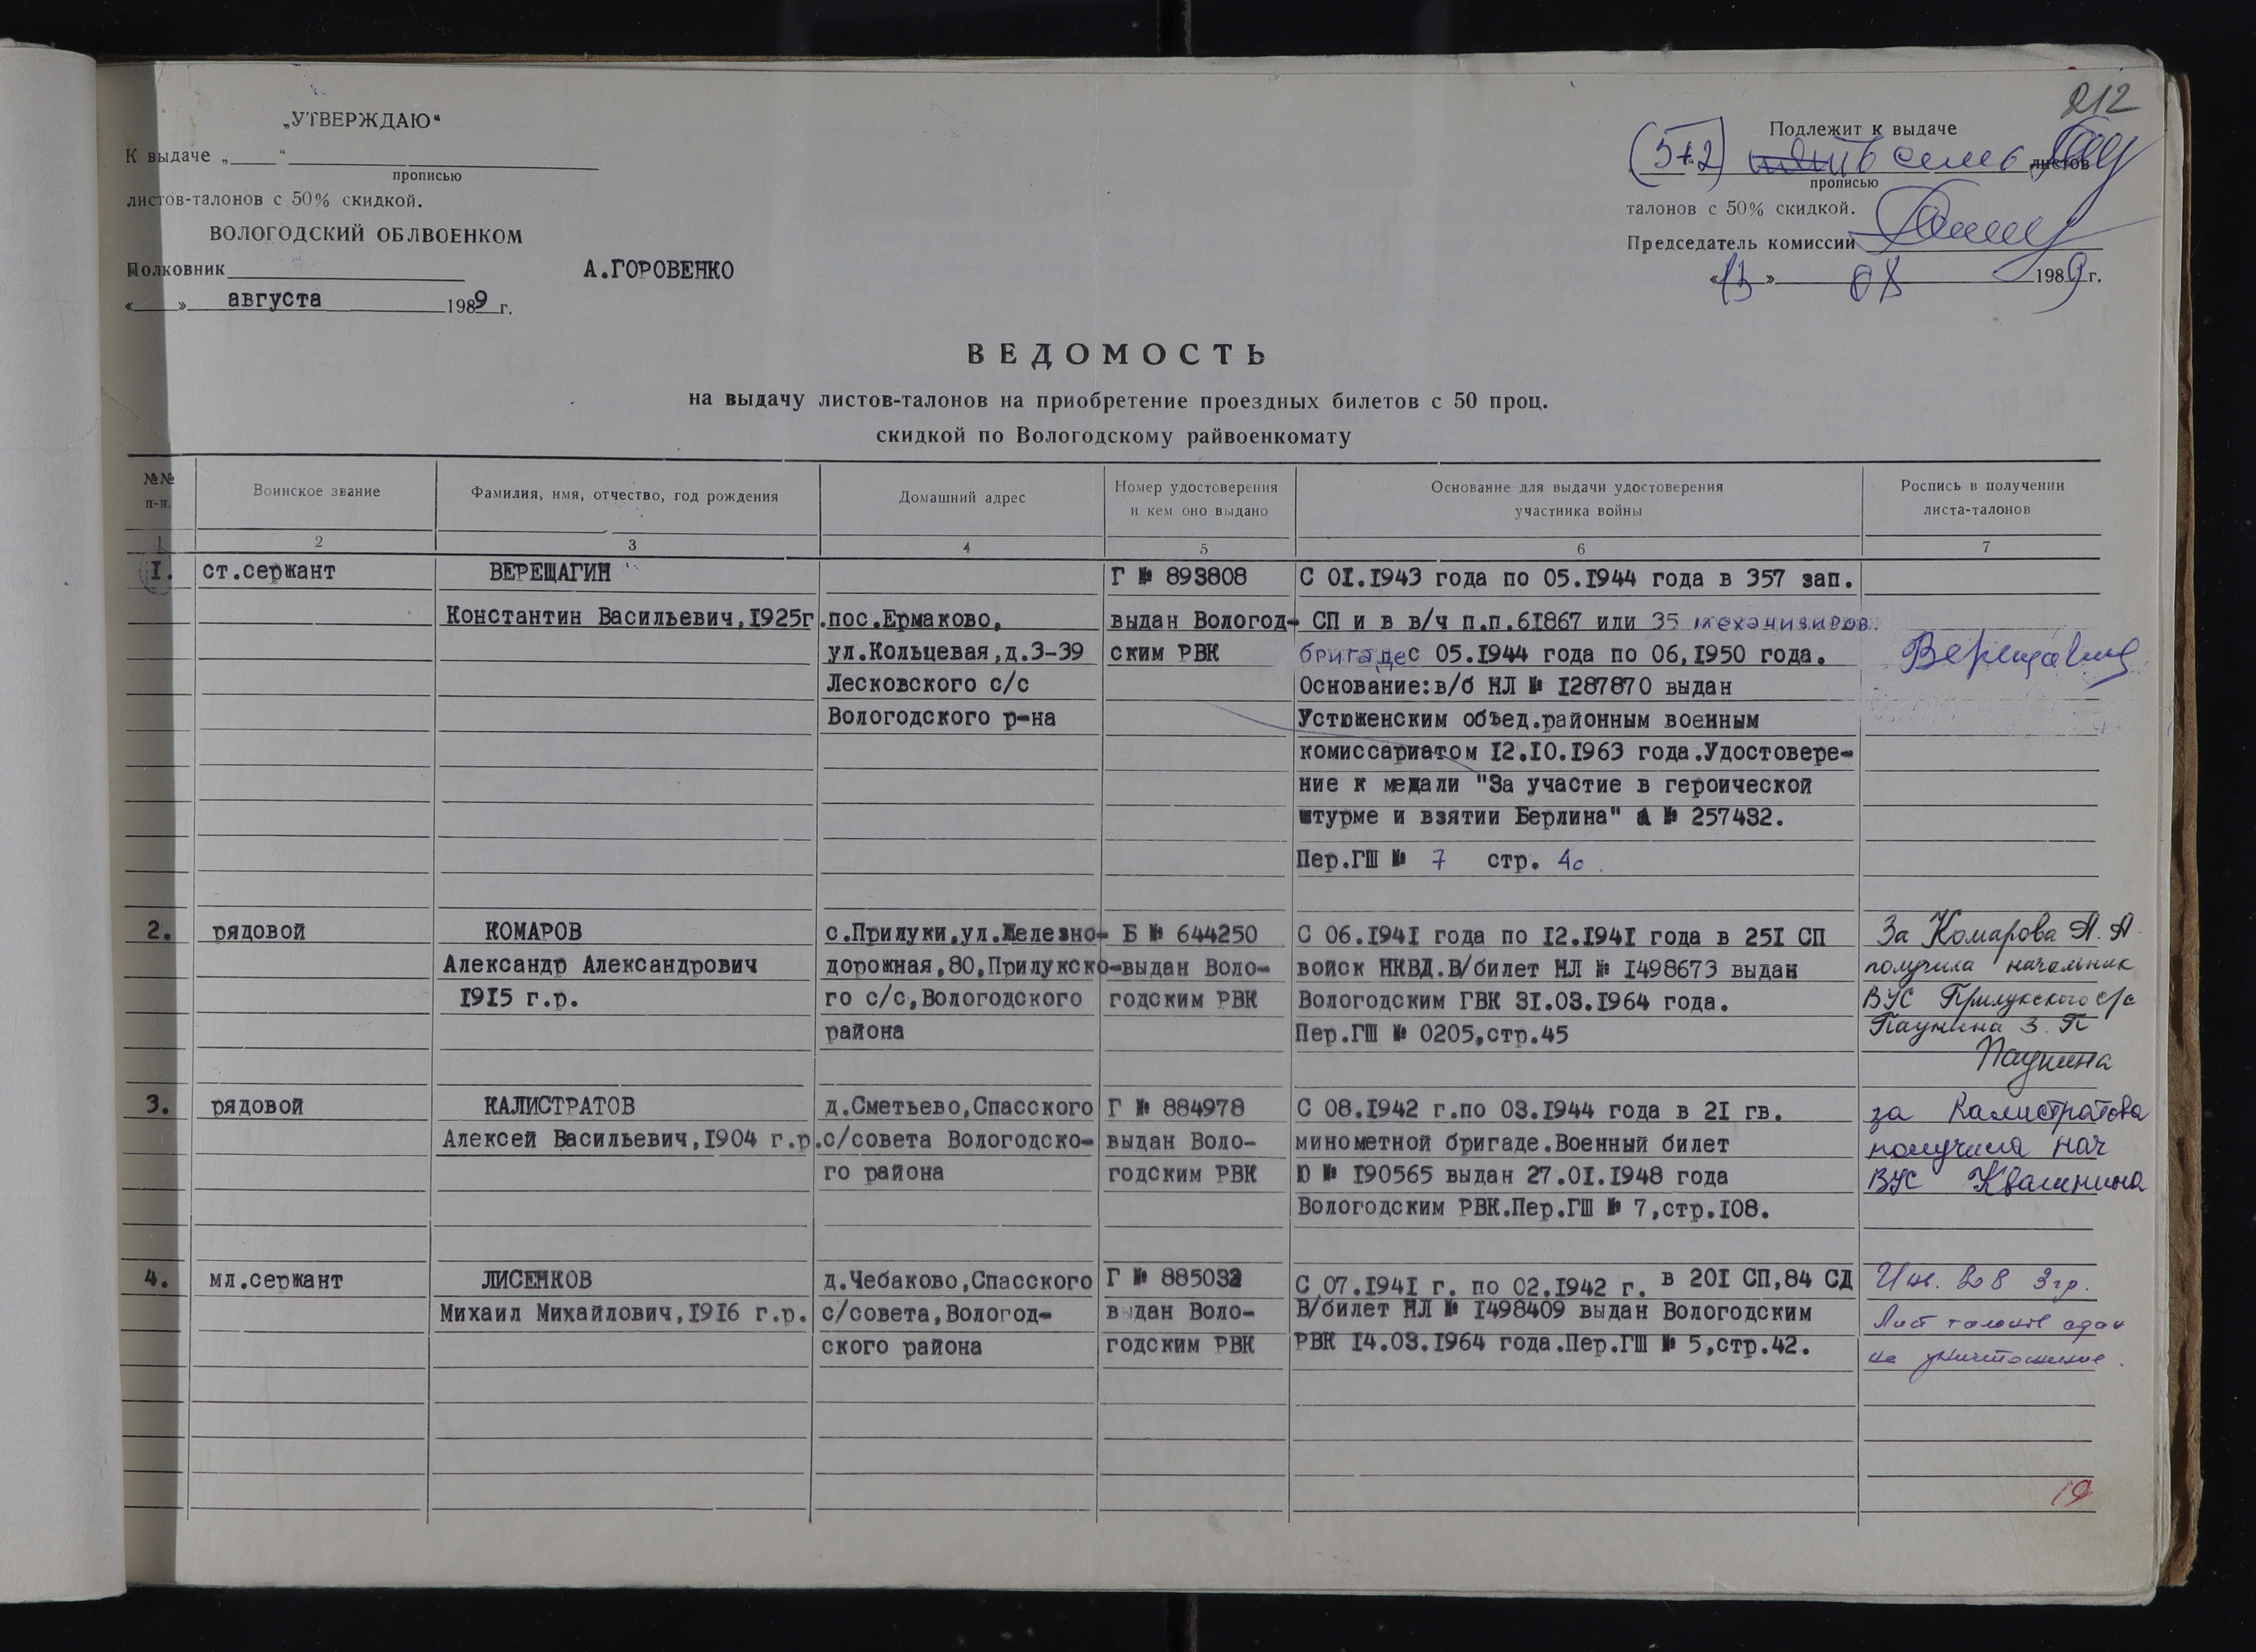 212
„УТВЕРЖДАЮ“
К выдаче „ “
прописью
листов-талонов с 50% скидкой.
ВОЛОГОДСКИЙ ОБЛВОЕНКОМ
Полковник А.ГОРОВЕНКО
« » августа 1989 г.
Подлежит к выдаче
(5+2) семь листов
прописью
талонов с 50% скидкой.
Председатель комиссии
1989 г.
ВЕДОМОСТЬ
на выдачу листов-талонов на приобретение проездных билетов с 50 проц.
скидкой по Вологодскому райвоенкомату
№№ п-п.
Воинское звание
Фамилия, имя, отчество, год рождения
Домашний адрес
Номер удостоверения
и кем оно выдано
Основание для выдачи удостоверения
участника войны
Роспись в получении
листа-талонов
1 2 3 4 5 6 7
I. ст.сержант ВЕРЕЩАГИН Г № 893808 С 0I.I943 года по 05.I944 года в 357 зап.
Константин Васильевич,I925г. пос.Ермаково, выдан Вологод- СП и в в/ч п.п.6I867 или 35 механизиров.
ул.Кольцевая,д.3-39 ским РВК бригаде с 05.I944 года по 06,I950 года. Верещагин
Лесковского с/с Основание:в/б НЛ № I287870 выдан
Вологодского р-на Устюженским объед.районным военным
комиссариатом I2.I0.I963 года.Удостовере-
ние к медали "За участие в героической
штурме и взятии Берлина" А № 257432.
Пер.ГШ № 7 стр. 40.
2. рядовой КОМАРОВ с.Прилуки,ул.Железно- Б № 644250 С 06.I94I года по I2.I94I года в 25I СП За Комарова А.А.
Александр Александрович дорожная,80,Прилукско- выдан Воло- войск НКВД.В/билет НЛ № I498673 выдан получила начальник
I9I5 г.р. го с/с,Вологодского годским РВК Вологодским ГВК 3I.03.I964 года. ВУС Прилукского с/с
района Пер.ГШ № 0205,стр.45 Паунина З. П
Паунина
3. рядовой КАЛИСТРАТОВ д.Сметьево,Спасского Г № 884978 С 08.I942 г.по 03.I944 года в 2I гв. за Калистратова
Алексей Васильевич,I904 г.р. с/совета Вологодско- выдан Воло- минометной бригаде.Военный билет получила нач
го района годским РВК Ю № I90565 выдан 27.0I.I948 года ВУС Квашнина
Вологодским РВК.Пер.ГШ № 7,стр.I08.
4. мл.сержант ЛИСЕНКОВ д.Чебаково,Спасского Г № 885032 С 07.I94I г. по 02.I942 г. в 20I СП,84 СД Инв. ВОВ 3 гр.
Михаил Михайлович,I9I6 г.р. с/совета,Вологод- выдан Воло- В/билет НЛ № I498409 выдан Вологодским Лист талонов сдан
ского района годским РВК РВК I4.03.I964 года.Пер.ГШ № 5,стр.42. на уничтожение.